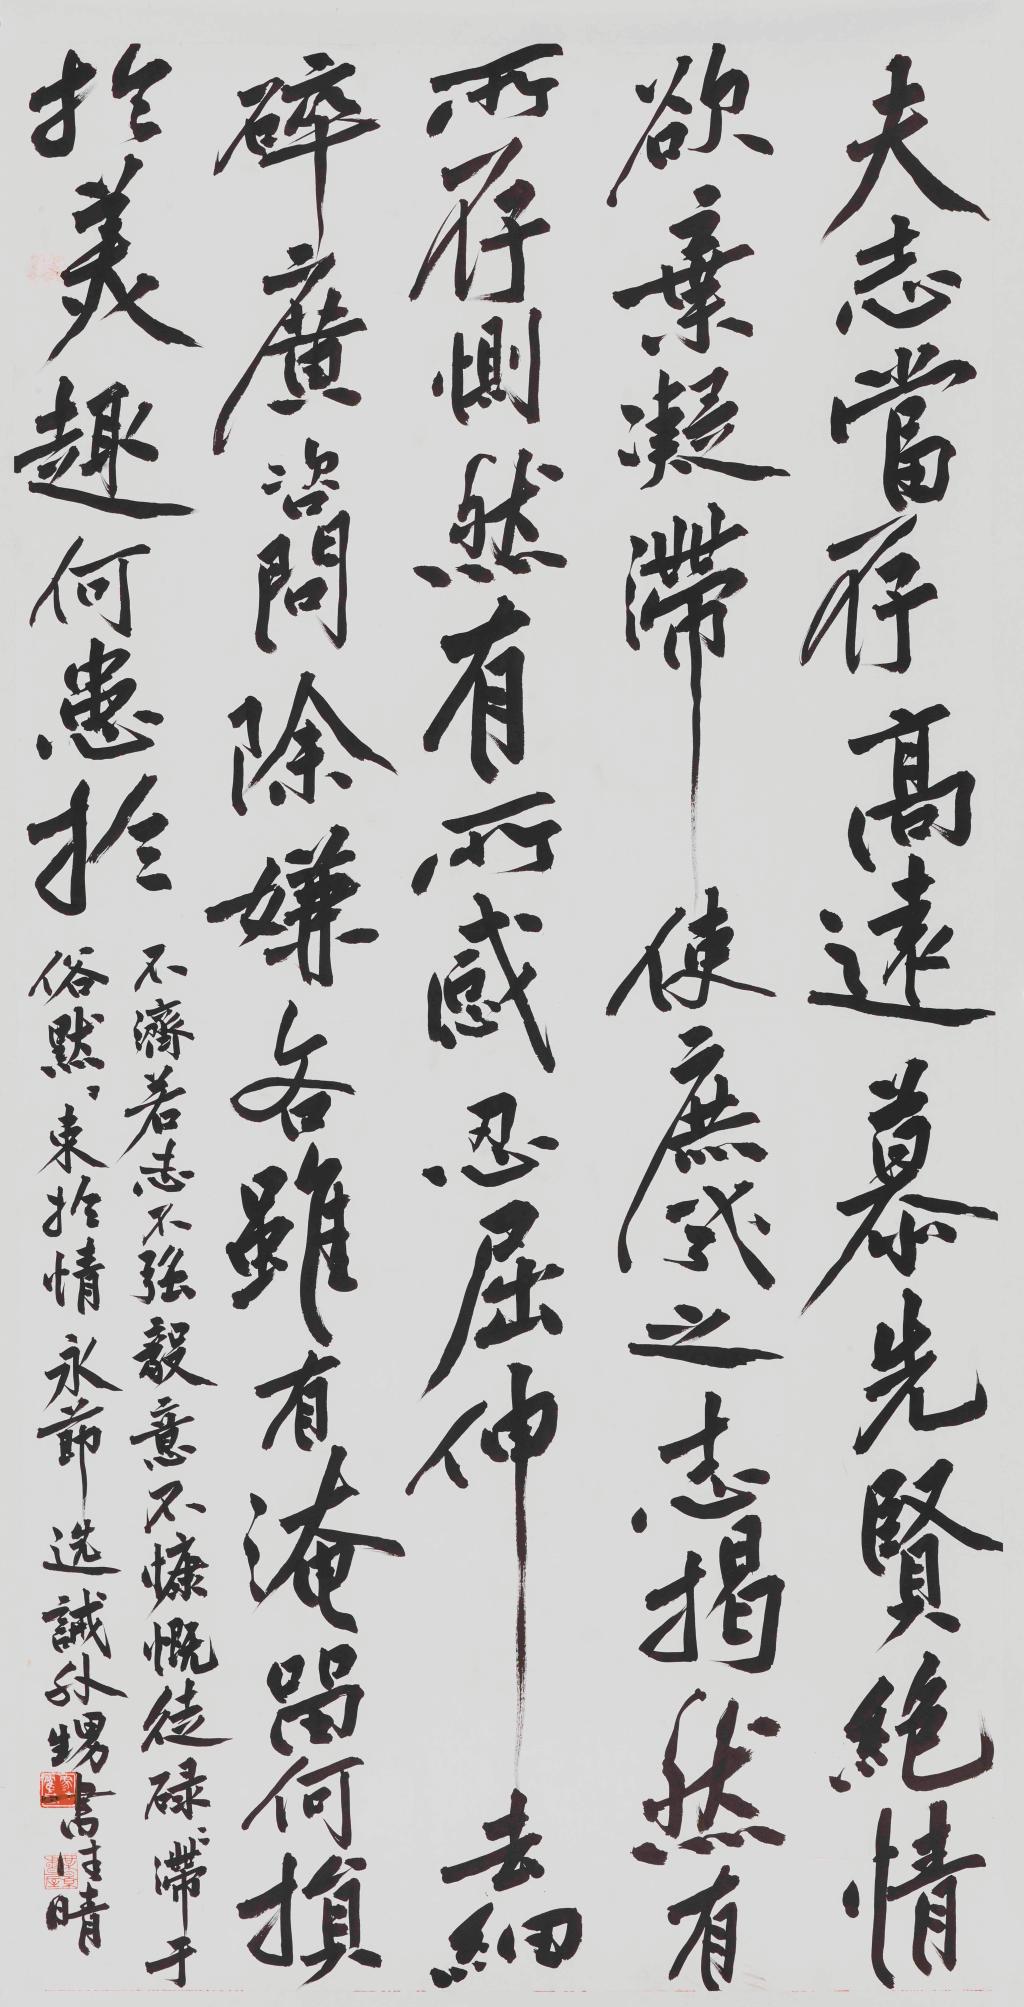 夫志當存高遠慕先賢絶情
欲棄凝滯使庶幾之志揭然有
所存惻然有所感忍屈伸去細
碎廣咨問除嫌吝雖有淹留何損
於美趣何患於
不濟若志不强毅意不慷慨徒碌〻滯于
俗默〻束於情永節選誡外甥書